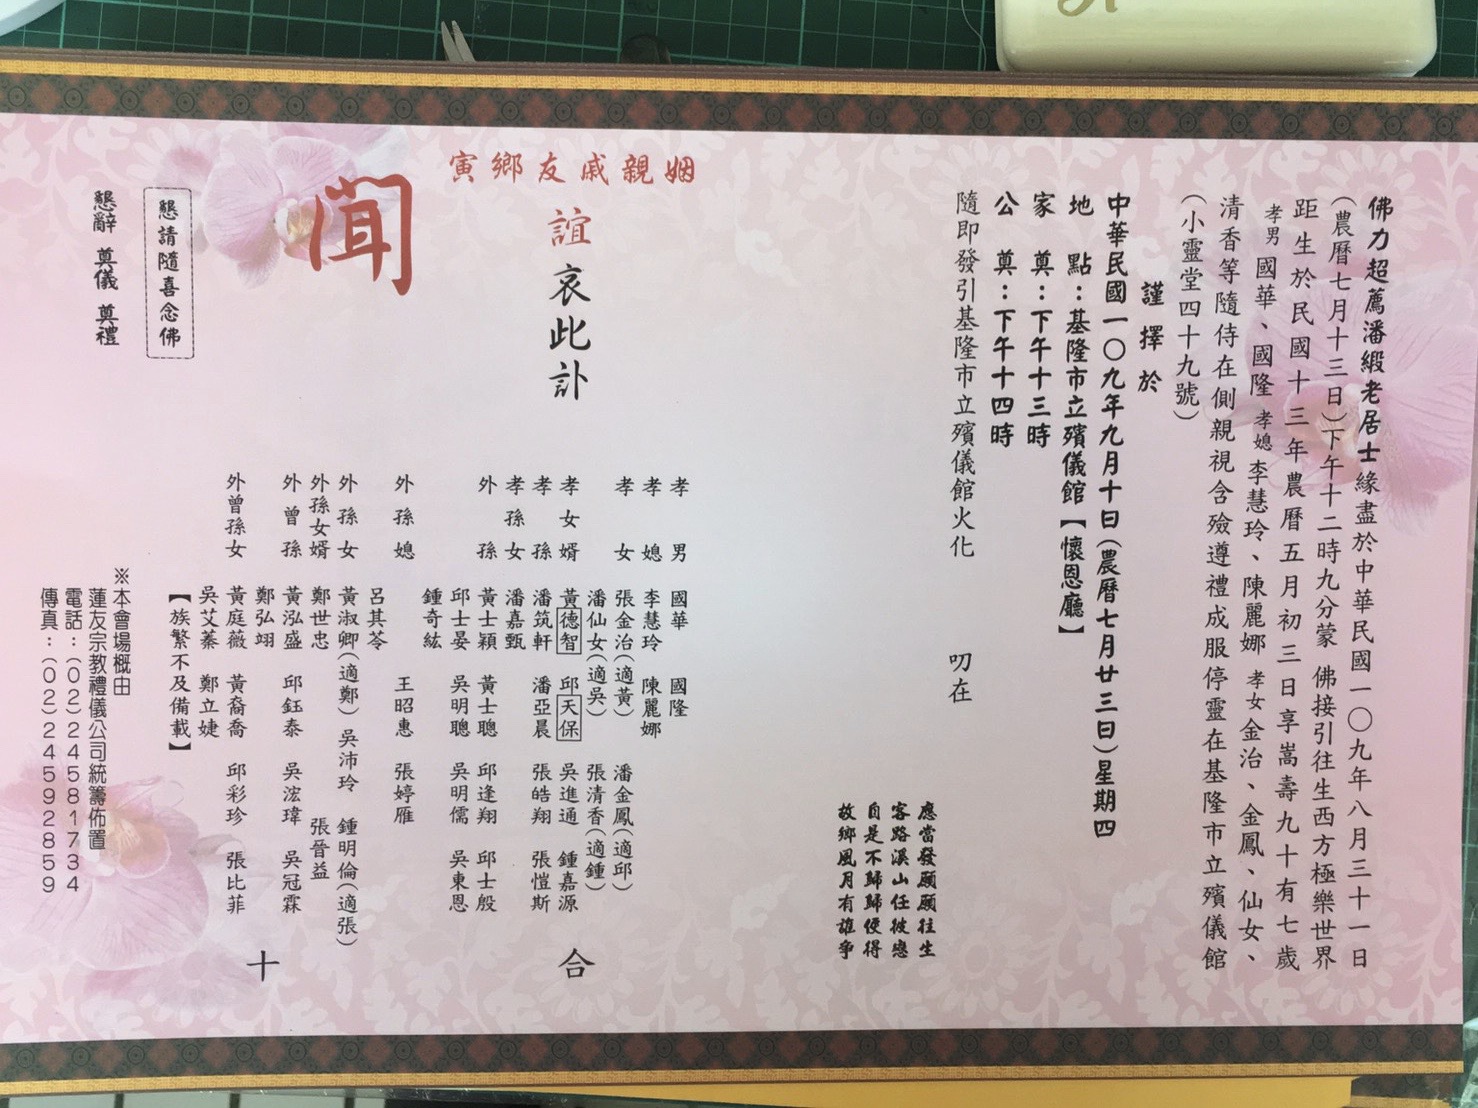 佛力超薦潘緞老居士緣盡於中華民國一〇九年八月三十一日
(農曆七月十三日)下午十二時九分蒙 佛接引往生西方極樂世界
距生於民國十三年農曆五月初三日享嵩壽九十有七歲
孝男 國華、國隆 孝媳 李慧玲、陳麗娜 孝女 金治、金鳳、仙女、
清香等隨侍在側親視含殮遵禮成服停靈在基隆市立殯儀館
(小靈堂四十九號)
謹擇於
中華民國一〇九年九月十日(農曆七月廿三日)星期四
地 點:基隆市立殯儀館【懷恩廳】
家 奠:下午十三時
公 奠:下午十四時
隨即發引基隆市立殯儀館火化 叨在
應當發願願往生
客路溪山任彼戀
自是不歸歸便得
故鄉風月有誰爭
姻親戚友鄉寅
誼
哀此訃
聞
孝男 國華 國隆
孝媳 李慧玲 陳麗娜
孝女 張金治(適黃) 潘金鳳(適邱)
潘仙女(適吳) 張清香(適鍾)
孝女婿 黃德智 邱天保 吳進通 鍾嘉源
孝孫 潘筑軒 潘亞晨 張皓翔 張愷斯
孝孫女 潘嘉甄
外孫 黃士穎 黃士聰 邱逢翔 邱士殷
邱士晏 吳明聰 吳明儒 吳東恩
鍾奇紘
外孫媳 王昭惠 張婷雁
呂其苓
外孫女 黃淑卿(適鄭) 吳沛玲 鍾明倫(適張)
外孫女婿 鄭世忠 張晉益
外曾孫 黃泓盛 邱鈺泰 吳浤瑋 吳冠霖
鄭弘翊
外曾孫女 黃庭薇 黃裔喬 邱彩珍 張比菲
吳艾蓁 鄭立婕
【族繁不及備載】
合
十
懇請隨喜念佛
懇辭 奠儀 奠禮
※本會場概由
蓮友宗教禮儀公司統籌佈置
電話:(02)24581734
傳真:(02)24592859